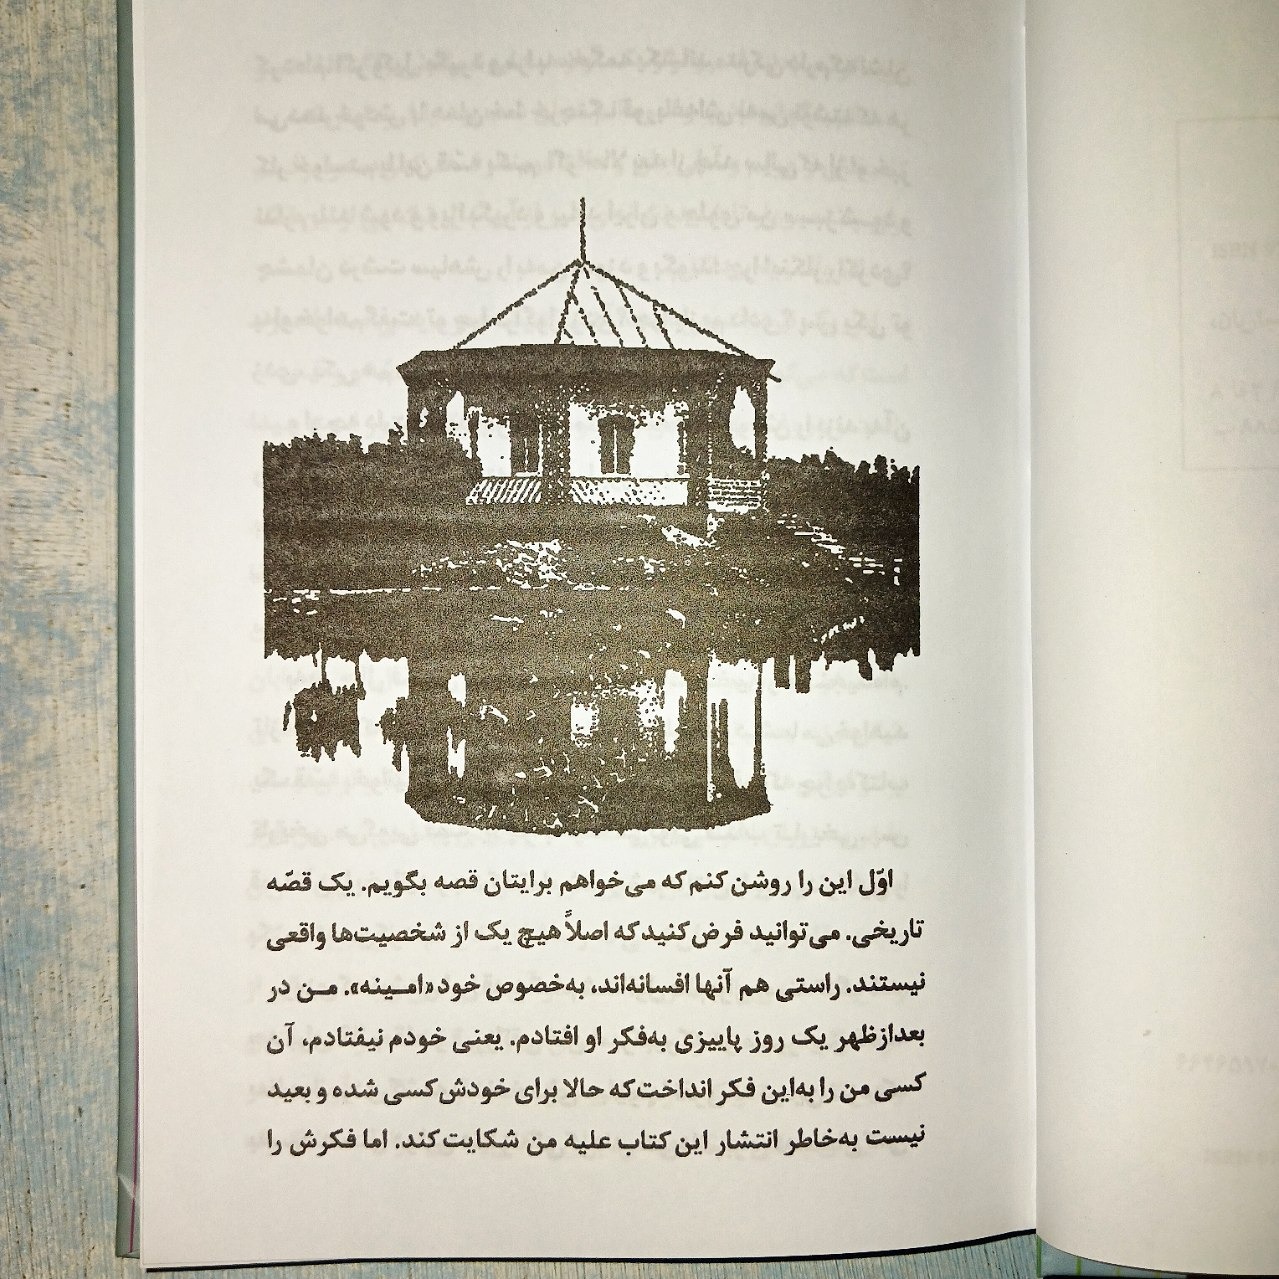 اوّل این را روشن کنم که می‌خواهم برایتان قصه بگویم. یک قصّه
تاریخی. می‌توانید فرض کنید که اصلاً هیچ یک از شخصیت‌ها واقعی
نیستند. راستی هم آنها افسانه‌اند، به‌خصوص خود «امـینه». مـن در
بعدازظهر یک روز پاییزی به‌فکر او افتادم. یعنی خودم نیفتادم، آن
کسی من را به‌این فکر انداخت که حالا برای خودش کسی شده و بعید
نیست به‌خاطر انتشار این کتاب علیه من شکایت کند. اما فکرش را